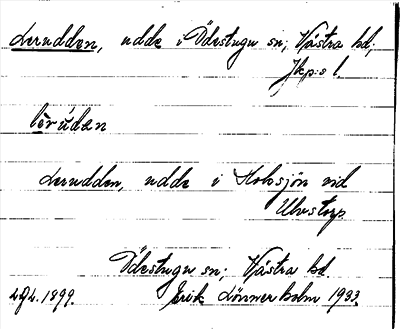 Lerudden, udde i Ödestugu sn; Västra hd;
Jkp:s l.
lèrúdan
Lerudden, udde i Holosjön vid
Ulvstorp
Ödestugu sn; Västra hd.
1899. Erik Lönnerholm 1933.